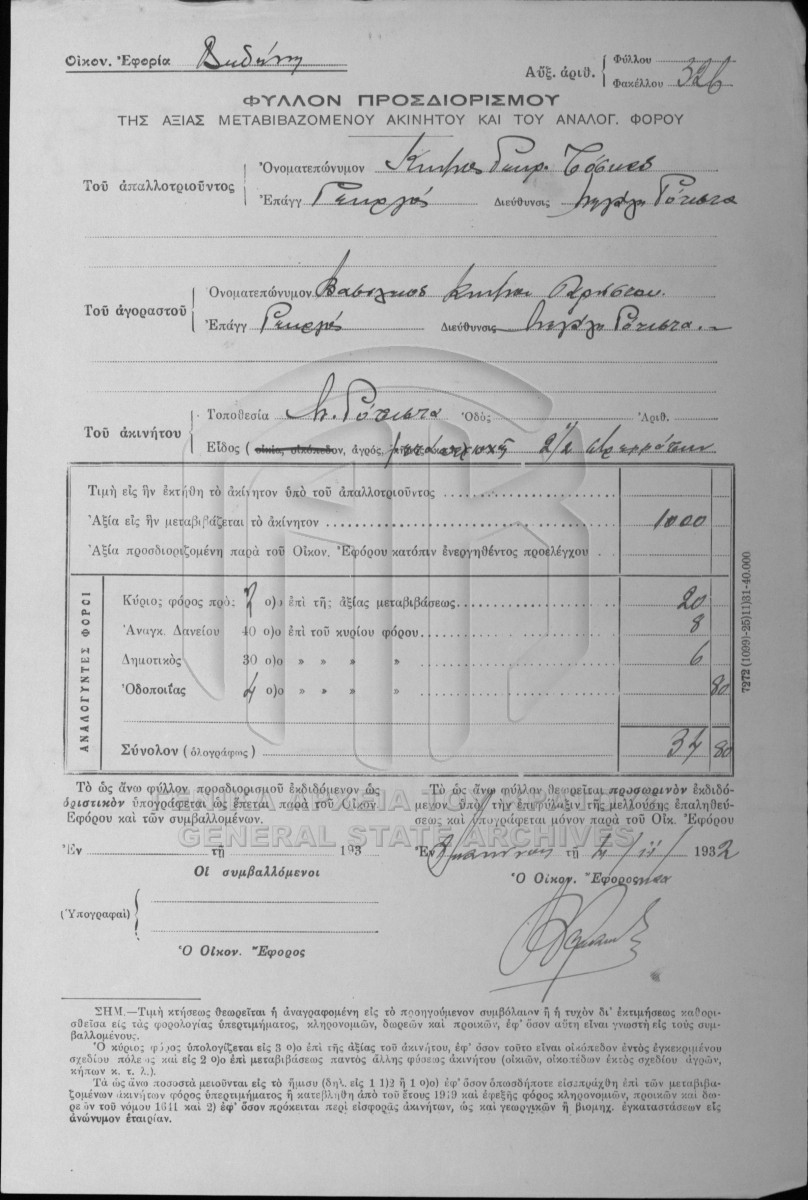 Οἰκον. Ἐφορία
Αὔξ. ἀριθ. { Φύλλου
Φακέλλου 326
ΦΥΛΛΟΝ ΠΡΟΣΔΙΟΡΙΣΜΟΥ
ΤΗΣ ΑΞΙΑΣ ΜΕΤΑΒΙΒΑΖΟΜΕΝΟΥ ΑΚΙΝΗΤΟΥ ΚΑΙ ΤΟΥ ΑΝΑΛΟΓ. ΦΟΡΟΥ
Τοῦ ἀπαλλοτριοῦντος { Ὀνοματεπώνυμον
Ἐπάγγ Γεωργός Διεύθυνσις
Τοῦ ἀγοραστοῦ { Ὀνοματεπώνυμον
Ἐπάγγ Γεωργός Διεύθυνσις
Τοῦ ἀκινήτου { Τοποθεσία Ὁδὸς Ἀριθ.
Εἶδος (οἰκία, οἰκόπεδον, ἀγρός, 2 1/2 στρεμμάτων
Τιμὴ εἰς ἣν ἐκτήθη τὸ ἀκίνητον ὑπὸ τοῦ ἀπαλλοτριοῦντος
Ἀξία εἰς ἣν μεταβιβάζεται τὸ ἀκίνητον 1000
Ἀξία προσδιοριζομένη παρὰ τοῦ Οἰκον. Ἐφόρου κατόπιν ἐνεργηθέντος προελέγχου
ΑΝΑΛΟΓΥΝΤΕΣ ΦΟΡΟΙ
Κύριος φόρος πρὸς 2 ο)ο ἐπὶ τῆς ἀξίας μεταβιβάσεως 20
Ἀναγκ. Δανείου 40 ο)ο ἐπὶ τοῦ κυρίου φόρου 8
Δημοτικὸς 30 ο)ο » » » » 6
Ὁδοποιΐας 4 ο)ο » » » » 80
Σύνολον (ὁλογράφως) 34 80
7272 (1099)-25)1)31-40.000
Τὸ ὡς ἄνω φύλλον προσδιορισμοῦ ἐκδιδόμενον ὡς
ὁριστικὸν ὑπογράφεται ὡς ἕπεται παρὰ τοῦ Οἰκον.
Ἐφόρου καὶ τῶν συμβαλλομένων.
Ἐν τῇ 193
Οἱ συμβαλλόμενοι
(Ὑπογραφαὶ) {
Ὁ Οἰκον. Ἔφορος
Τὸ ὡς ἄνω φύλλον θεωρεῖται προσωρινὸν ἐκδιδό-
μενον ὑπὸ τὴν ἐπιφύλαξιν τῆς μελλούσης ἐπαληθεύ-
σεως καὶ ὑπογράφεται μόνον παρὰ τοῦ Οἰκ. Ἐφόρου
Ἐν τῇ 4/11/ 1932
Ὁ Οἰκον. Ἔφορος
ΓΕΝΙΚΑ ΑΡΧΕΙΑ ΤΟΥ ΚΡΑΤΟΥΣ
GENERAL STATE ARCHIVES
ΣΗΜ.—Τιμὴ κτήσεως θεωρεῖται ἡ ἀναγραφομένη εἰς τὸ προηγούμενον συμβόλαιον ἢ ἡ τυχὸν δι' ἐκτιμήσεως καθορι-
σθεῖσα εἰς τὰς φορολογίας ὑπερτιμήματος, κληρονομιῶν, δωρεῶν καὶ προικῶν, ἐφ' ὅσον αὕτη εἶναι γνωστὴ εἰς τοὺς συμ-
βαλλομένους.
Ὁ κύριος φόρος ὑπολογίζεται εἰς 3 ο)ο ἐπὶ τῆς ἀξίας τοῦ ἀκινήτου, ἐφ' ὅσον τοῦτο εἶναι οἰκόπεδον ἐντὸς ἐγκεκριμένου
σχεδίου πόλεως καὶ εἰς 2 ο)ο ἐπὶ μεταβιβάσεως παντὸς ἄλλης φύσεως ἀκινήτου (οἰκιῶν, οἰκοπέδων ἐκτὸς σχεδίου ἀγρῶν,
κήπων κ. τ. λ.).
Τὰ ὡς ἄνω ποσοστὰ μειοῦνται εἰς τὸ ἥμισυ (δηλ. εἰς 1 1)2 ἢ 1 ο)ο) ἐφ' ὅσον ὁπωσδήποτε εἰσεπράχθη ἐπὶ τῶν μεταβιβα-
ζομένων ἀκινήτων φόρος ὑπερτιμήματος ἢ κατεβλήθη ἀπὸ τοῦ ἔτους 1919 καὶ ἐφεξῆς φόρος κληρονομιῶν, προικῶν καὶ δω-
ρεῶν τοῦ νόμου 1641 καὶ 2) ἐφ' ὅσον πρόκειται περὶ εἰσφορᾶς ἀκινήτων, ὡς καὶ γεωργικῶν ἢ βιομηχ. ἐγκαταστάσεων εἰς
ἀνώνυμον ἑταιρίαν.